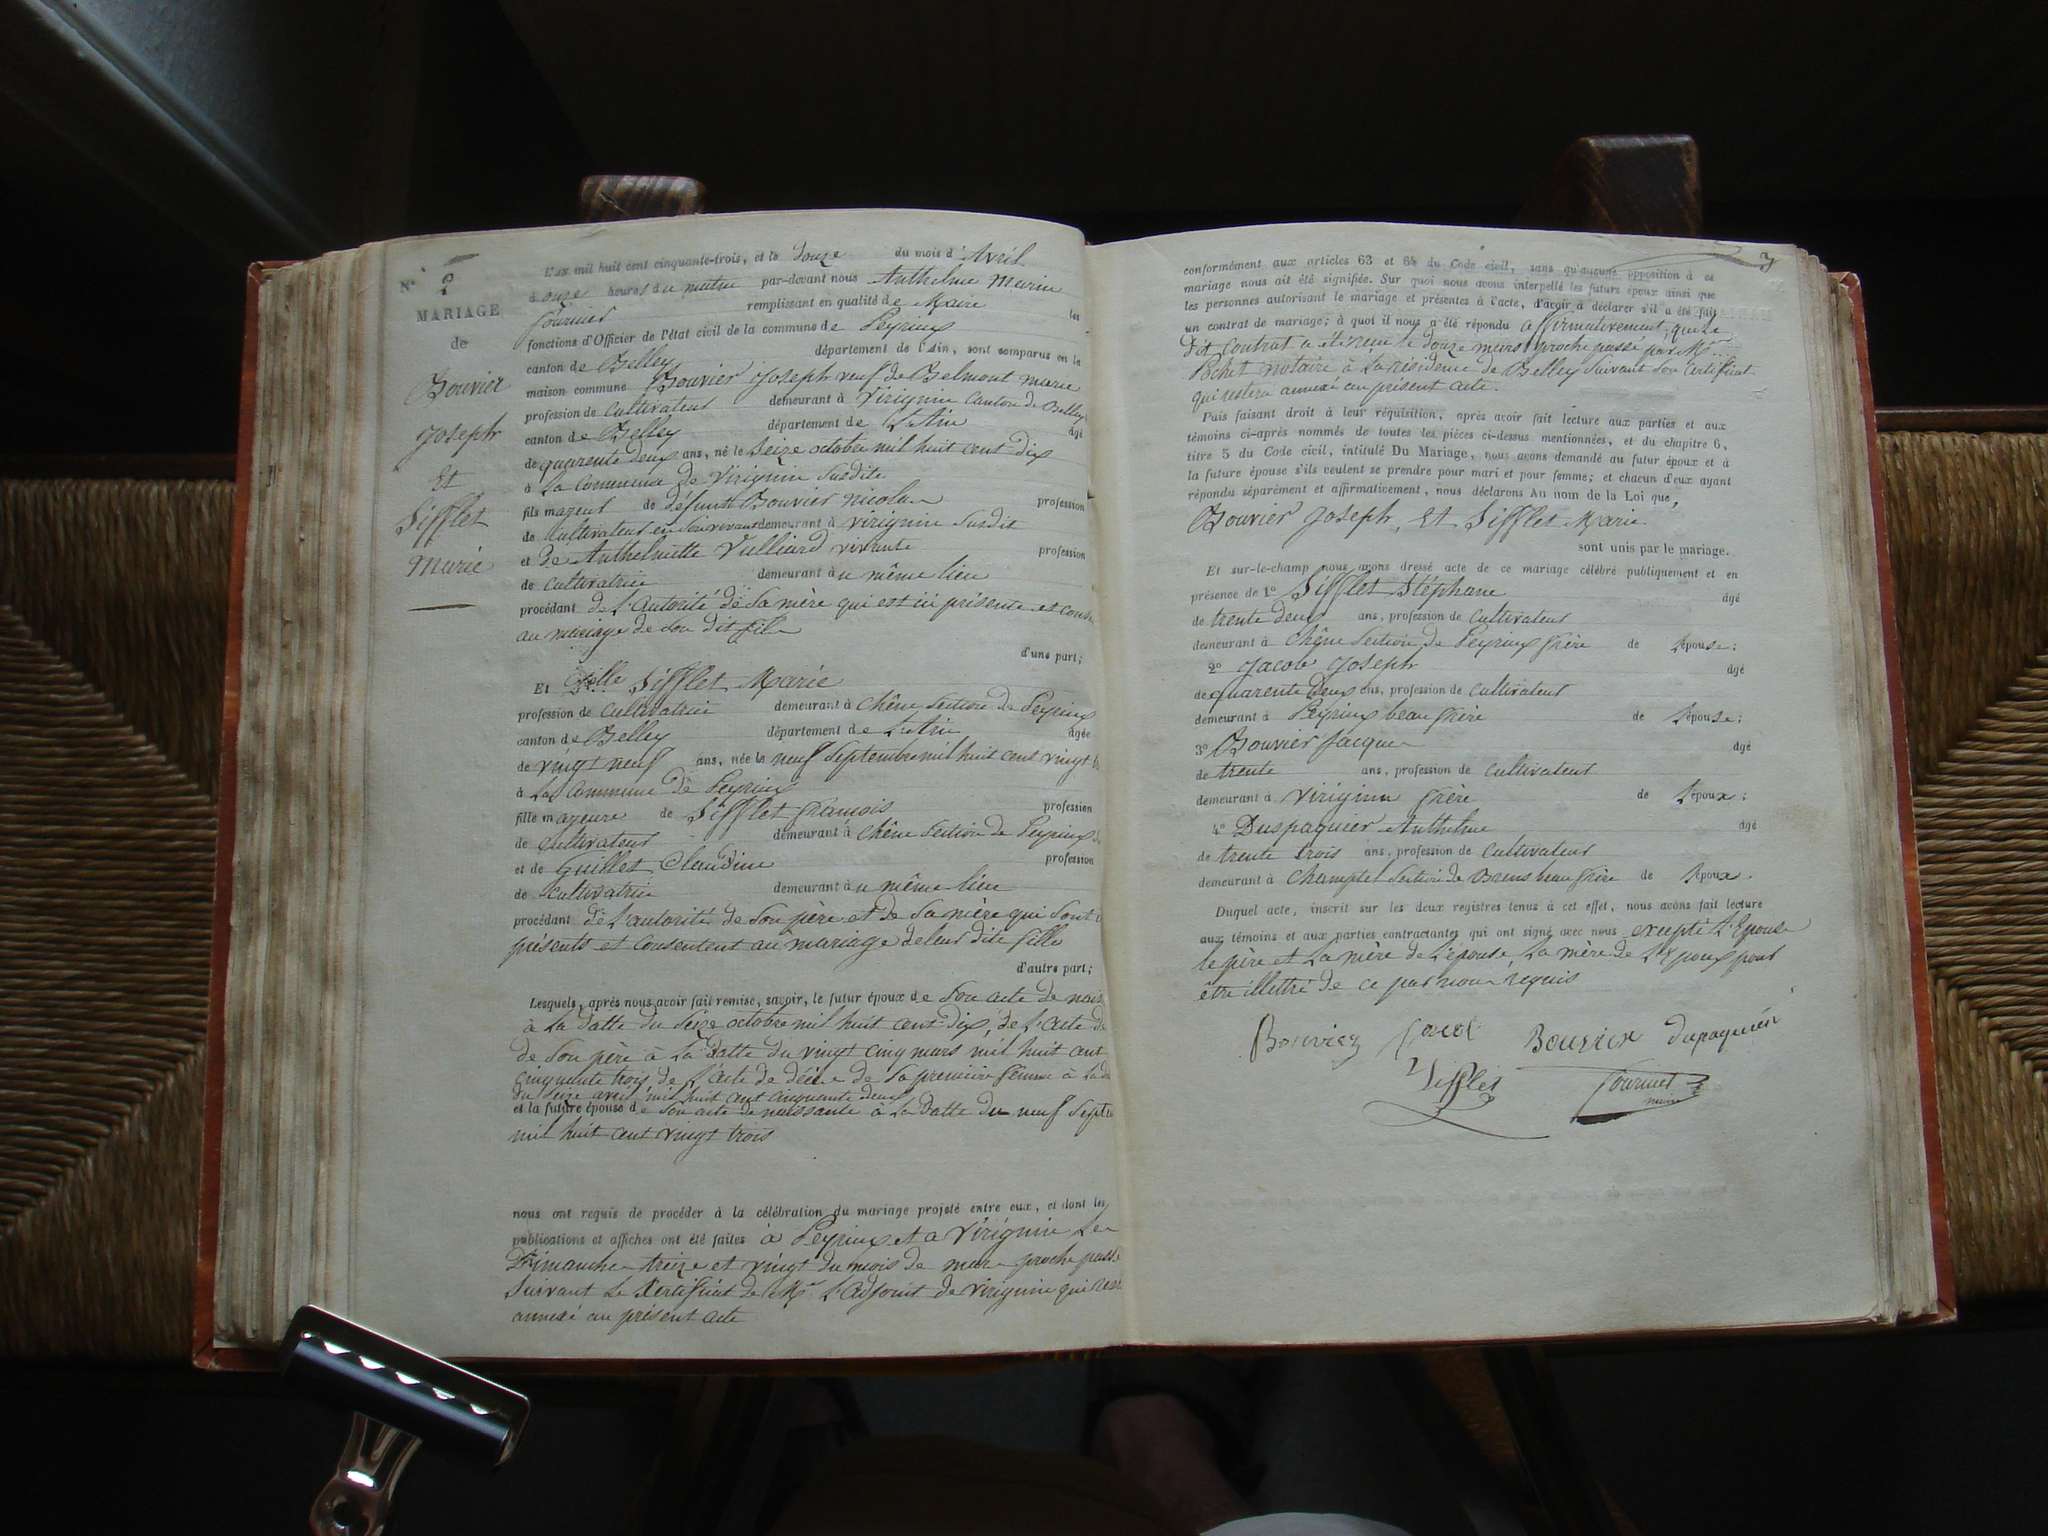 N° 2
MARIAGE
de
Bouvier
Joseph
Et
Sifflet
Marie
L'an mil huit cent cinquante-trois, et le douze du mois d'Avril
à onze heures du matin par-devant nous Anthelme Marin
fournier remplissant en qualité de Maire les
fonctions d'Officier de l'état civil de la commune de Peyrieux
canton de Belley département de l'Ain, sont comparus en la
maison commune Bouvier Joseph veuf de Belmont marie
profession de cultivateur demeurant à Virignin Canton de Belley
canton de Belley département de L'Ain âgé
de quarente deux ans, né le seize octobre mil huit cent dix
à La Commune de Virignin susdite
fils majeur de défunt Bouvier nicolas profession
de Cultivateur en son vivant demeurant à virignin susdit
et de Anthelmette Vulliard vivante profession
de cultivatrice demeurant au même lieu
procédant de L'autorité de sa mère qui est ici présente et
au mariage de son dit fils
d'une part;
Et Delle Sifflet Marie
profession de cultivatrice demeurant à Chêne section de Peyrieux
canton de Belley département de L'Ain âgée
de vingt neuf ans, née le neuf septembre mil huit cent vingt
à La Commune de Peyrieux
fille majeure de Sifflet françois profession
de cultivateur demeurant à Chêne section de Peyrieux
et de Guillet Claudine profession
de cultivatrice demeurant au même lieu
procédant de L'autorité de son père et de sa mère qui sont
présents et consentent au mariage de leur dite fille
d'autre part;
Lesquels, après nous avoir fait remise, savoir, le futur époux de son acte de
à La datte du seize octobre mil huit cent dix, de L'acte de
de son père à La datte du vingt cinq mars mil huit cent
cinquente trois de L'acte de décès de sa première femme à
du seize avril mil huit cent cinquante deux
et la future épouse de son acte de naissante à La datte du neuf
mil huit cent vingt trois
nous ont requis de procéder à la célébration du mariage projeté entre eux, et dont les
publications et affiches ont été faites à Peyrieux et a Virignin Les
Dimanches treize et vingt du mois de mars proche passé
suivant Le Certificat de Mr L'adjoint de virignin qui
annexé au présent acte
3
conformément aux articles 63 et 64 du Code civil, sans qu'aucune opposition à ce
mariage nous ait été signifiée. Sur quoi nous avons interpellé les futurs époux ainsi que
les personnes autorisant le mariage et présentes à l'acte, d'avoir à déclarer s'il a été fait
un contrat de mariage; à quoi il nous a été répondu affirmativement, que Le
dit Contrat a été reçu le douze mars proche passé par Me
Pochet notaire à La résidence de Belley suivant son certificat
qui restera annexé au présent acte.
Puis faisant droit à leur réquisition, après avoir fait lecture aux parties et aux
témoins ci-après nommés de toutes les pièces ci-dessus mentionnées, et du chapitre 6,
titre 5 du Code civil, intitulé Du Mariage, nous avons demandé au futur époux et à
la future épouse s'ils veulent se prendre pour mari et pour femme; et chacun d'eux ayant
répondu séparément et affirmativement, nous déclarons Au nom de la Loi que,
Bouvier Joseph, Et Sifflet Marie
sont unis par le mariage.
Et sur-le-champ nous avons dressé acte de ce mariage célébré publiquement et en
présence de 1° Sifflet Stéphane âgé
de trente deux ans, profession de cultivateur
demeurant à Chêne section de Peyrieux frère de L'épouse;
2° Jacob Joseph âgé
de quarente deux ans, profession de cultivateur
demeurant à Peyrieux beau frère de L'épouse;
3° Bouvier Jacques âgé
de trente ans, profession de cultivateur
demeurant à Virignin frère de L'époux;
4° Duspaquier Anthelme âgé
de trente trois ans, profession de cultivateur
demeurant à Champtel section de Brens beau frère de L'époux.
Duquel acte, inscrit sur les deux registres tenus à cet effet, nous avons fait lecture
aux témoins et aux parties contractantes qui ont signé avec nous excepté L'Epouse
le père et La mère de L'épouse, La mère de L'époux pour
être illettré de ce par nous requis
Bouvier Jacob Bouvier dupaquier
Sifflet fournier
maire